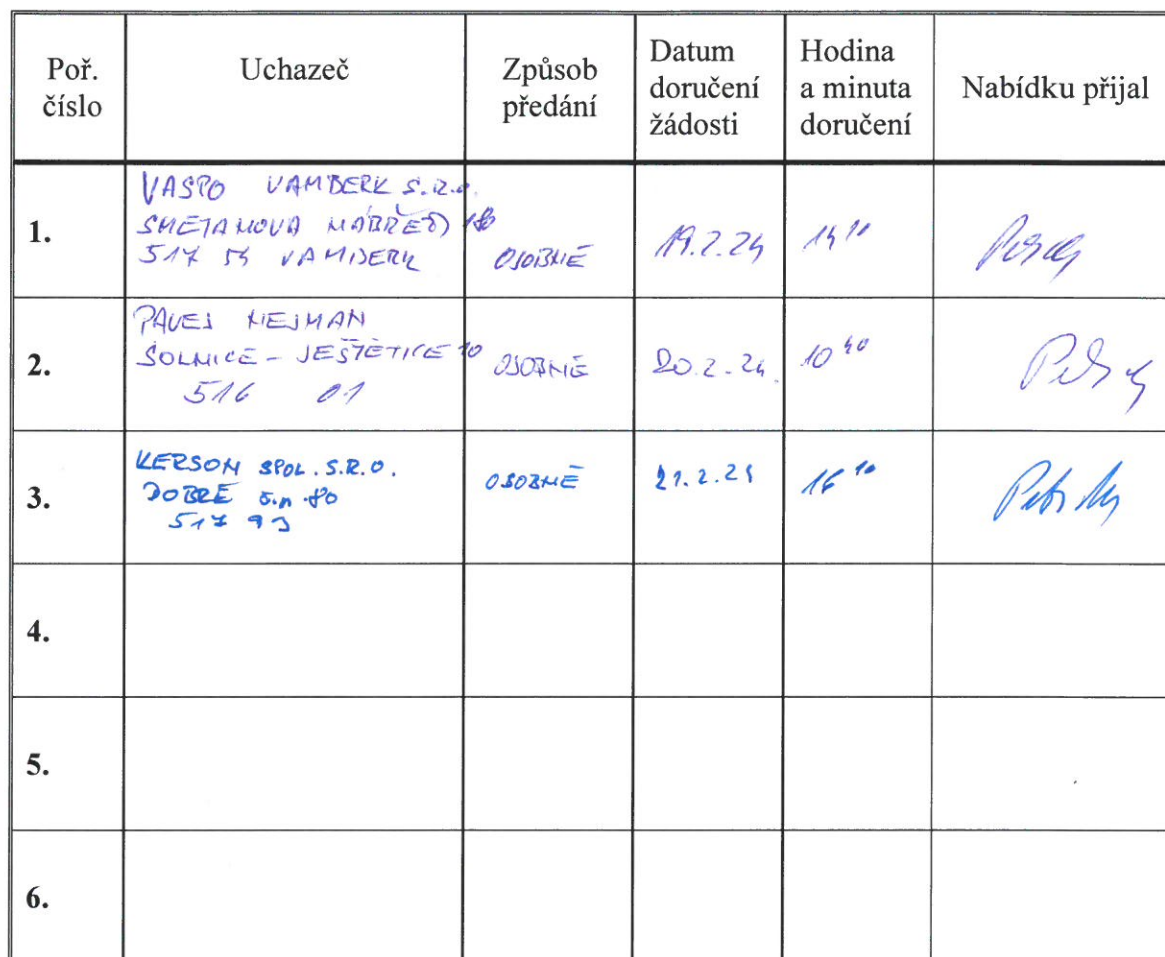 Poř. číslo
Uchazeč
Způsob předání
Datum doručení žádosti
Hodina a minuta doručení
Nabídku přijal
1.
VASPO VAMBERK S.R.O.
SMETANOVA NÁBŘEŽÍ
517 54 VAMBERK
OSOBNĚ
19.2.24
14 10
2.
PAVEL NEJMAN
SOLNICE - JEŠTĚTICE 10
516 01
OSOBNĚ
20.2.24.
10 40
3.
KERSON SPOL. S.R.O.
DOBRÉ č.p. 80
517 93
OSOBNĚ
21.2.24
16 10
4.
5.
6.